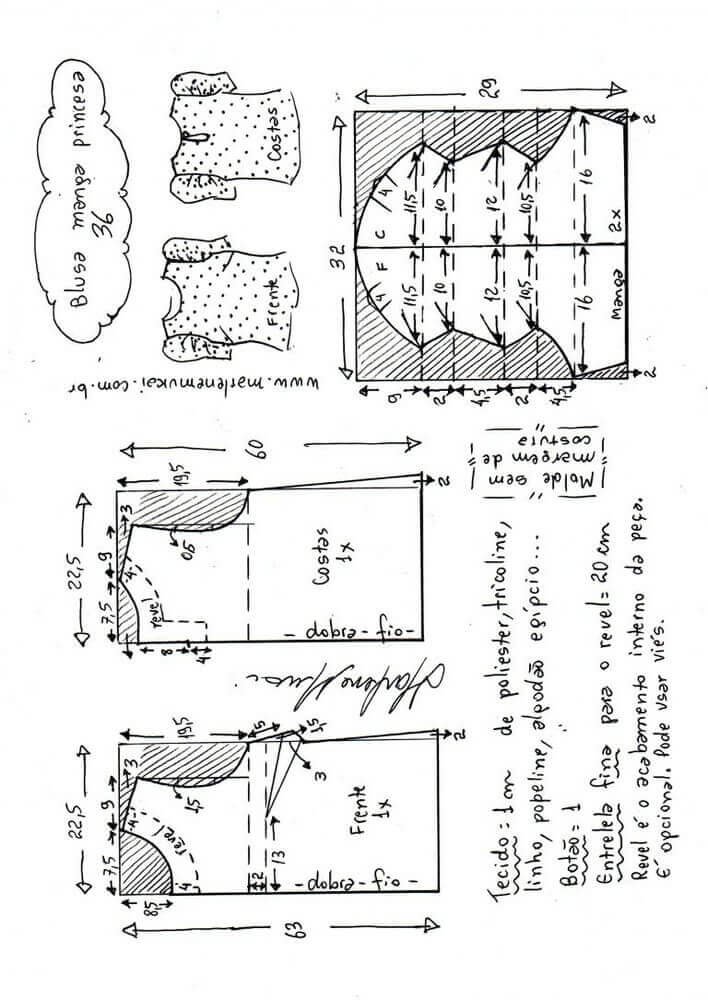 Blusa manga princesa
36
Frente
Costas
www.marlenemukai.com.br
63
22,5
7,5
9
3
8,5
4
4
revel
1,5
19,5
5
1,5
3
2
13
Frente
1x
-dobra-fio-
2
22,5
7,5
9
3
4
revel
8
4
0,5
19,5
60
Costas
1x
-dobra-fio-
2
Molde sem
margem de
costura
32
29
C
F
4
4
11,5
11,5
10
10
12
12
10,5
10,5
16
16
9
2
4,5
2
4,5
2
2
Manga
2x
Tecido = 1 cm de poliester, tricoline,
linho, popeline, algodão egípcio...
Botão = 1
Entretela fina para o revel = 20 cm
Revel é o acabamento interno da peça.
É opcional. Pode usar viés.